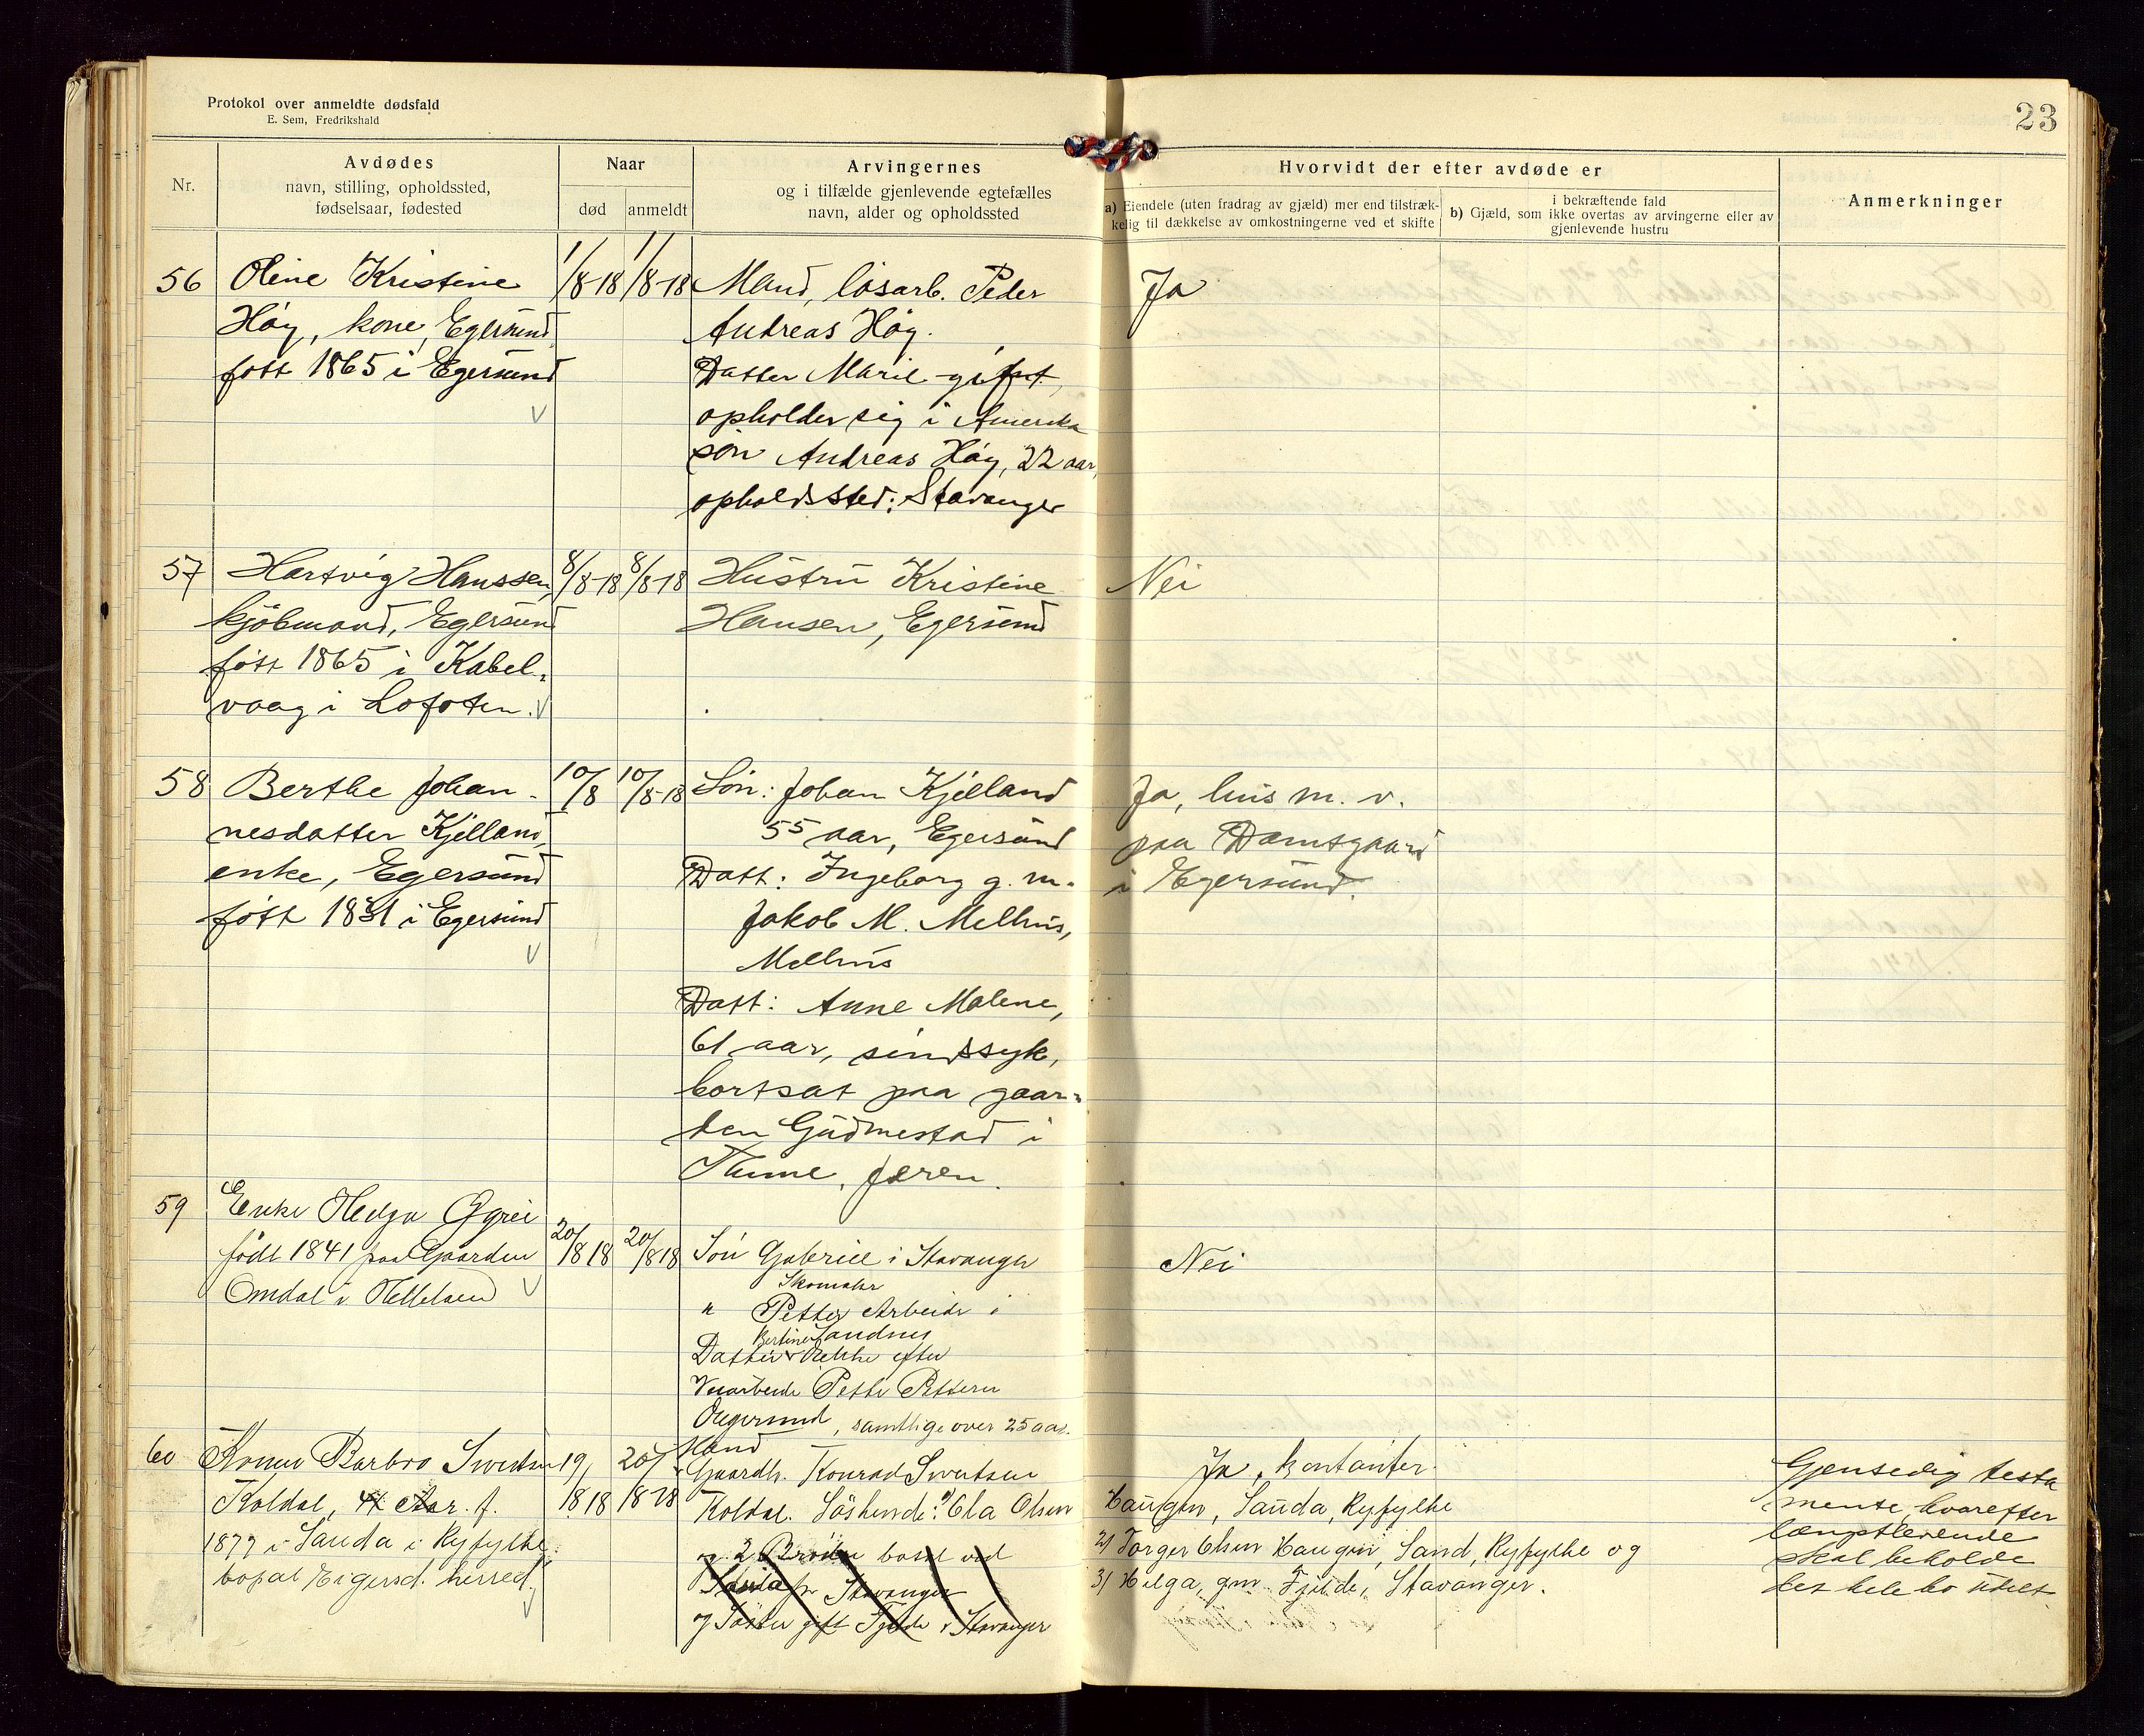 Protokol over anmeldte dødsfald
E. Sem, Fredrikshald
23
Nr.
Avdødes
navn, stilling, opholdssted,
fødselsaar, fødested
Naar
død
anmeldt
Arvingernes
og i tilfælde gjenlevende egtefælles
navn, alder og opholdssted
Hvorvidt der efter avdøde er
a) Eiendele (uten fradrag av gjæld) mer end tilstræk-
kelig til dækkelse av omkostningerne ved et skifte
i bekræftende fald
b) Gjæld, som ikke overtas av arvingerne eller av
gjenlevende hustru
Anmerkninger
56
Oline Kristine
Høy, kone, Egersund
født 1865 i Egersund
1/8-18
1/8-18
Mand, løsarb. Peder
Andreas Høy.
Datter Marie gift,
opholder sig i Amerika
søn Andreas Høy, 22 aar,
opholdssted: Stavanger
Ja
57
Hartvig Hanssen,
kjøbmand, Egersund
født 1865 i Kabel-
vaag i Lofoten.
8/8-18
8/8-18
Hustru Kristine
Hansen, Egersund
Nei
58
Berthe Johan-
nesdatter Kjelland,
enke, Egersund
født 1831 i Egersund
10/8
10/8-18
Søn: Johan Kjelland
55 aar, Egersund
Datt: Ingeborg g. m.
Jakob M. Melhus,
Melhus
Datt: Anne Malene,
61 aar, sindssyk,
bortsat paa gaar-
den Gudmestad i
Thime, Jæren.
Ja, hus m. v.
paa Damsgaard
i Egersund.
59
Enke Helga Ogrei
født 1841 paa Gaarden
Omdal i Helleland
20/8 18
20/8 18
Søn Gabriel i Stavanger
Skomaker
" Petter Arbeider i
Sandnes
Datter Bertine Enke efter
Petter Pettersen
Egersund, samtlige over 25 aar.
Nei
60
Konen Barbro Sivertsen
Koldal, 41 Aar. f.
1877 i Sauda i Ryfylke,
bopæl Eigersd. herred.
19/8 18
20/8 18
Mand
Gaardb. Konrad Sivertsen
Koldal. Søskende: 1) Ola Olsen
Haugen, Sauda, Ryfylke
2) Torger Olsen Haugen, Sand, Ryfylke og
3) Helga, gm. Fjelde, Stavanger.
og 2 Brødre bosat ved
Sauda pr Stavanger
og Søster gift Fjelde i Stavanger
Ja, kontanter.
Gjensidig testa
mente, hvorefter
længstlevende
skal beholde
det hele bo udelt.